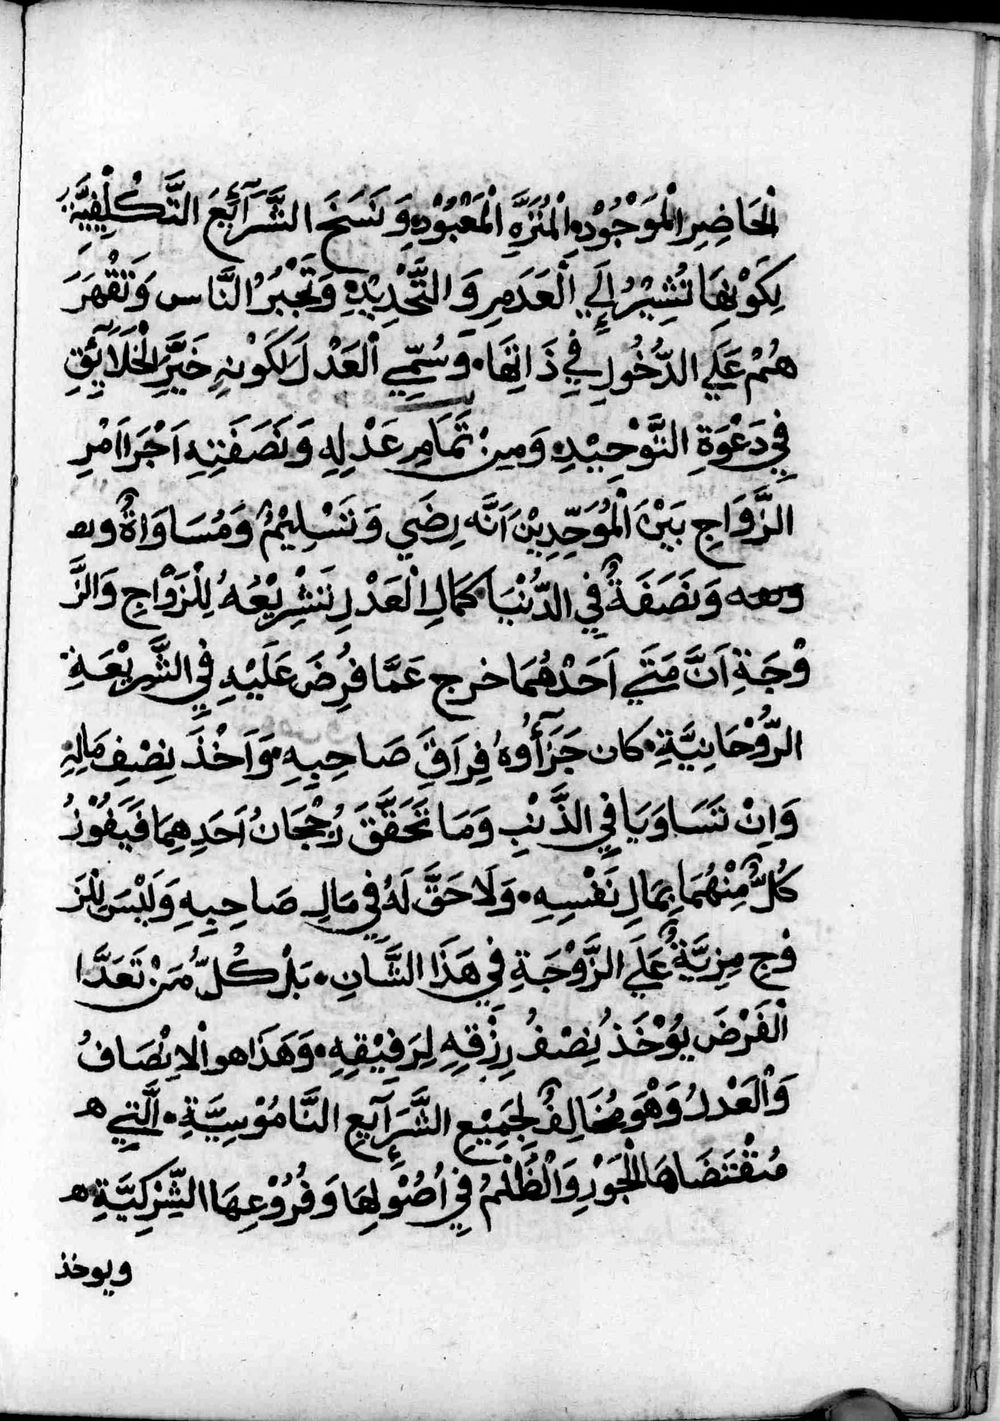 اْلحَاضِرِ الْمَوْجُوْدِ اِلْمُنَزَّهِ الْمَعْبُوْدِ وَنَسَخَ الشَّرَآئِعَ التَّكْلِيْفِيَّةِ
لِكَوْنِهَا تُشِيْرُ اِلَي اْلعَدَمِ وَالتَّحْدِيْدِ وَتُجْبِرُ النَّاس وَتَقْهَرَ
هُمْ عَلَي الدُّخُولِ فِي ذَاتِهَا. وَسُمِّيَ اْلعَدْلَ لِكَوْنِهِ خَيَّرَ الْخَلَآئِقِ
فِي دَعْوَةِ التَّوْحِيْدِ وَمِنْ تَمَامِ عَدْلِهِ وَنَصَفَتِهِ اَجْرَا اَمْرِ
الزَّوَاجِ بَيْنَ اْلمُوَحِّدِيْنَ اَنَّه رِضَي وَتَسْلِيْمٌ وَمُسَاوَاةٌ
وَنَصَفَةٌ فِي الدُّنْيَا كَمَالِ الْعَدْلِ تَشْرِيْعُهُ لِلْزَوْاجِ وَالزَّ
وْجَةِ اَنَّ مَتَي اَحَدْهُمَا خرج عَمَّا فُرِضَ عَلَيْهِ فِي الشَّرِيْعَةِ
الرُّوْحَانِيَّةِ. كان جَزَآؤُهُ فِرَاقَ صَاحِبِهِ. وَاَخْذَ نِصْفِ مَالِهِ
وَاِنْ تَسَاوَيَا فِي الذَّنْبِ وَمَا تَحَقَّقَ رُجْحَانُ اَحَدِهِمَا فَيَفُوْزُ
كُلٌّ مِنْهُمَا بِمَالِ نَفْسِهِ. وَلَا حَقَّ لَهُ فِي مَالِ صَاحِبِهِ وَلَيْسَ لِلْزَ
وْجِ مِزِيَّةٌ عَلَي الزَّوْجَةِ فِي هَذَا الشَّانِ. بَلْ كُلُّ مَنْ تَعَدَّا
اْلفَرْضَ يُوْخَذُ نِصْفُ رِزْقِهِ لِرَفِيْقِهِ. وَهَذَا هو اْلاِنْصَافُ
وَاْلعَدْلُ وَهْوَ مُخَالِفٌ لِجَمِيْعِ الشَّرَآيِعِ النَّامُوْسِيَّةِ. اَلَّتِي
مُقْتَضَاهَا الْجَوْرِ وَالْظُلْمُ فِي اُصُوْلِهَا وَفُرُوْعِهَا الشِّرْكِيَّةِ
ويوخذ